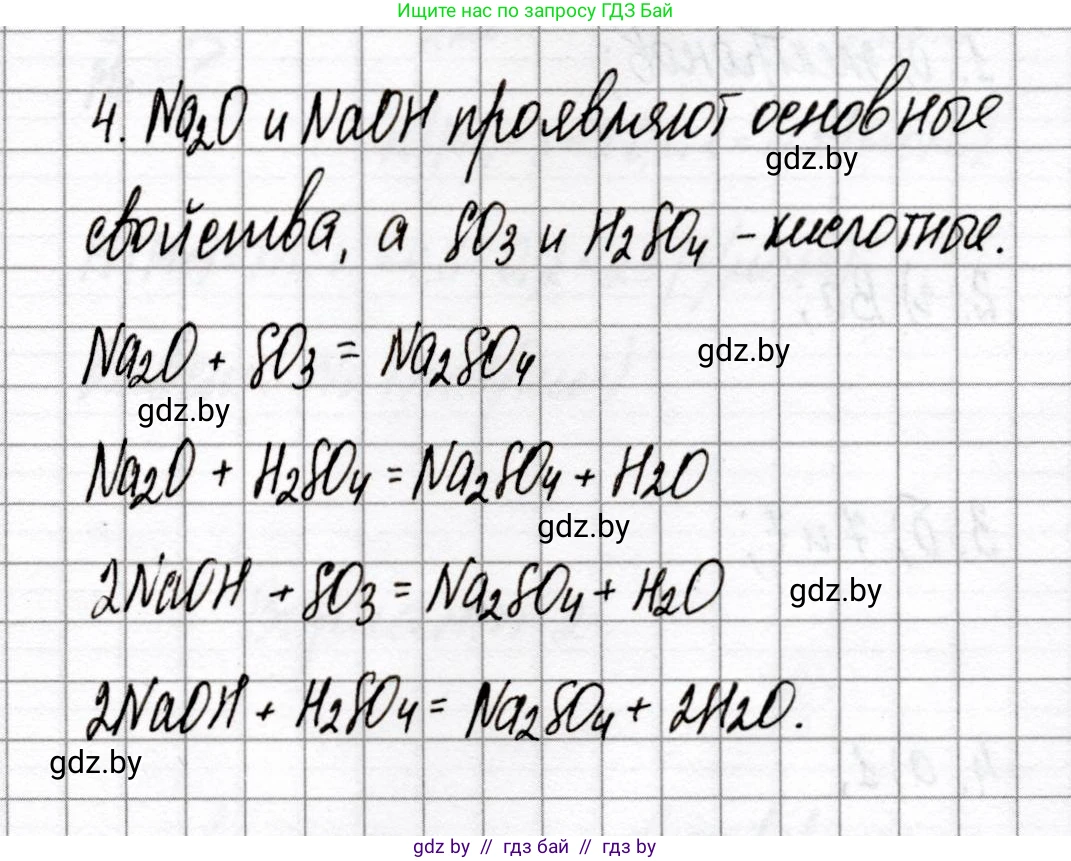 Ищите нас по запросу ГДЗ Бай
4. Na₂O и NaOH проявляют основные
gdz.by
свойства, а SO₃ и H₂SO₄ – кислотные.
Na₂O + SO₃ = Na₂SO₄
gdz.by
gdz.by
Na₂O + H₂SO₄ = Na₂SO₄ + H₂O
gdz.by
2NaOH + SO₃ = Na₂SO₄ + H₂O
gdz.by
2NaOH + H₂SO₄ = Na₂SO₄ + 2H₂O.
gdz.by
gdz by // гдз бай // гдз by